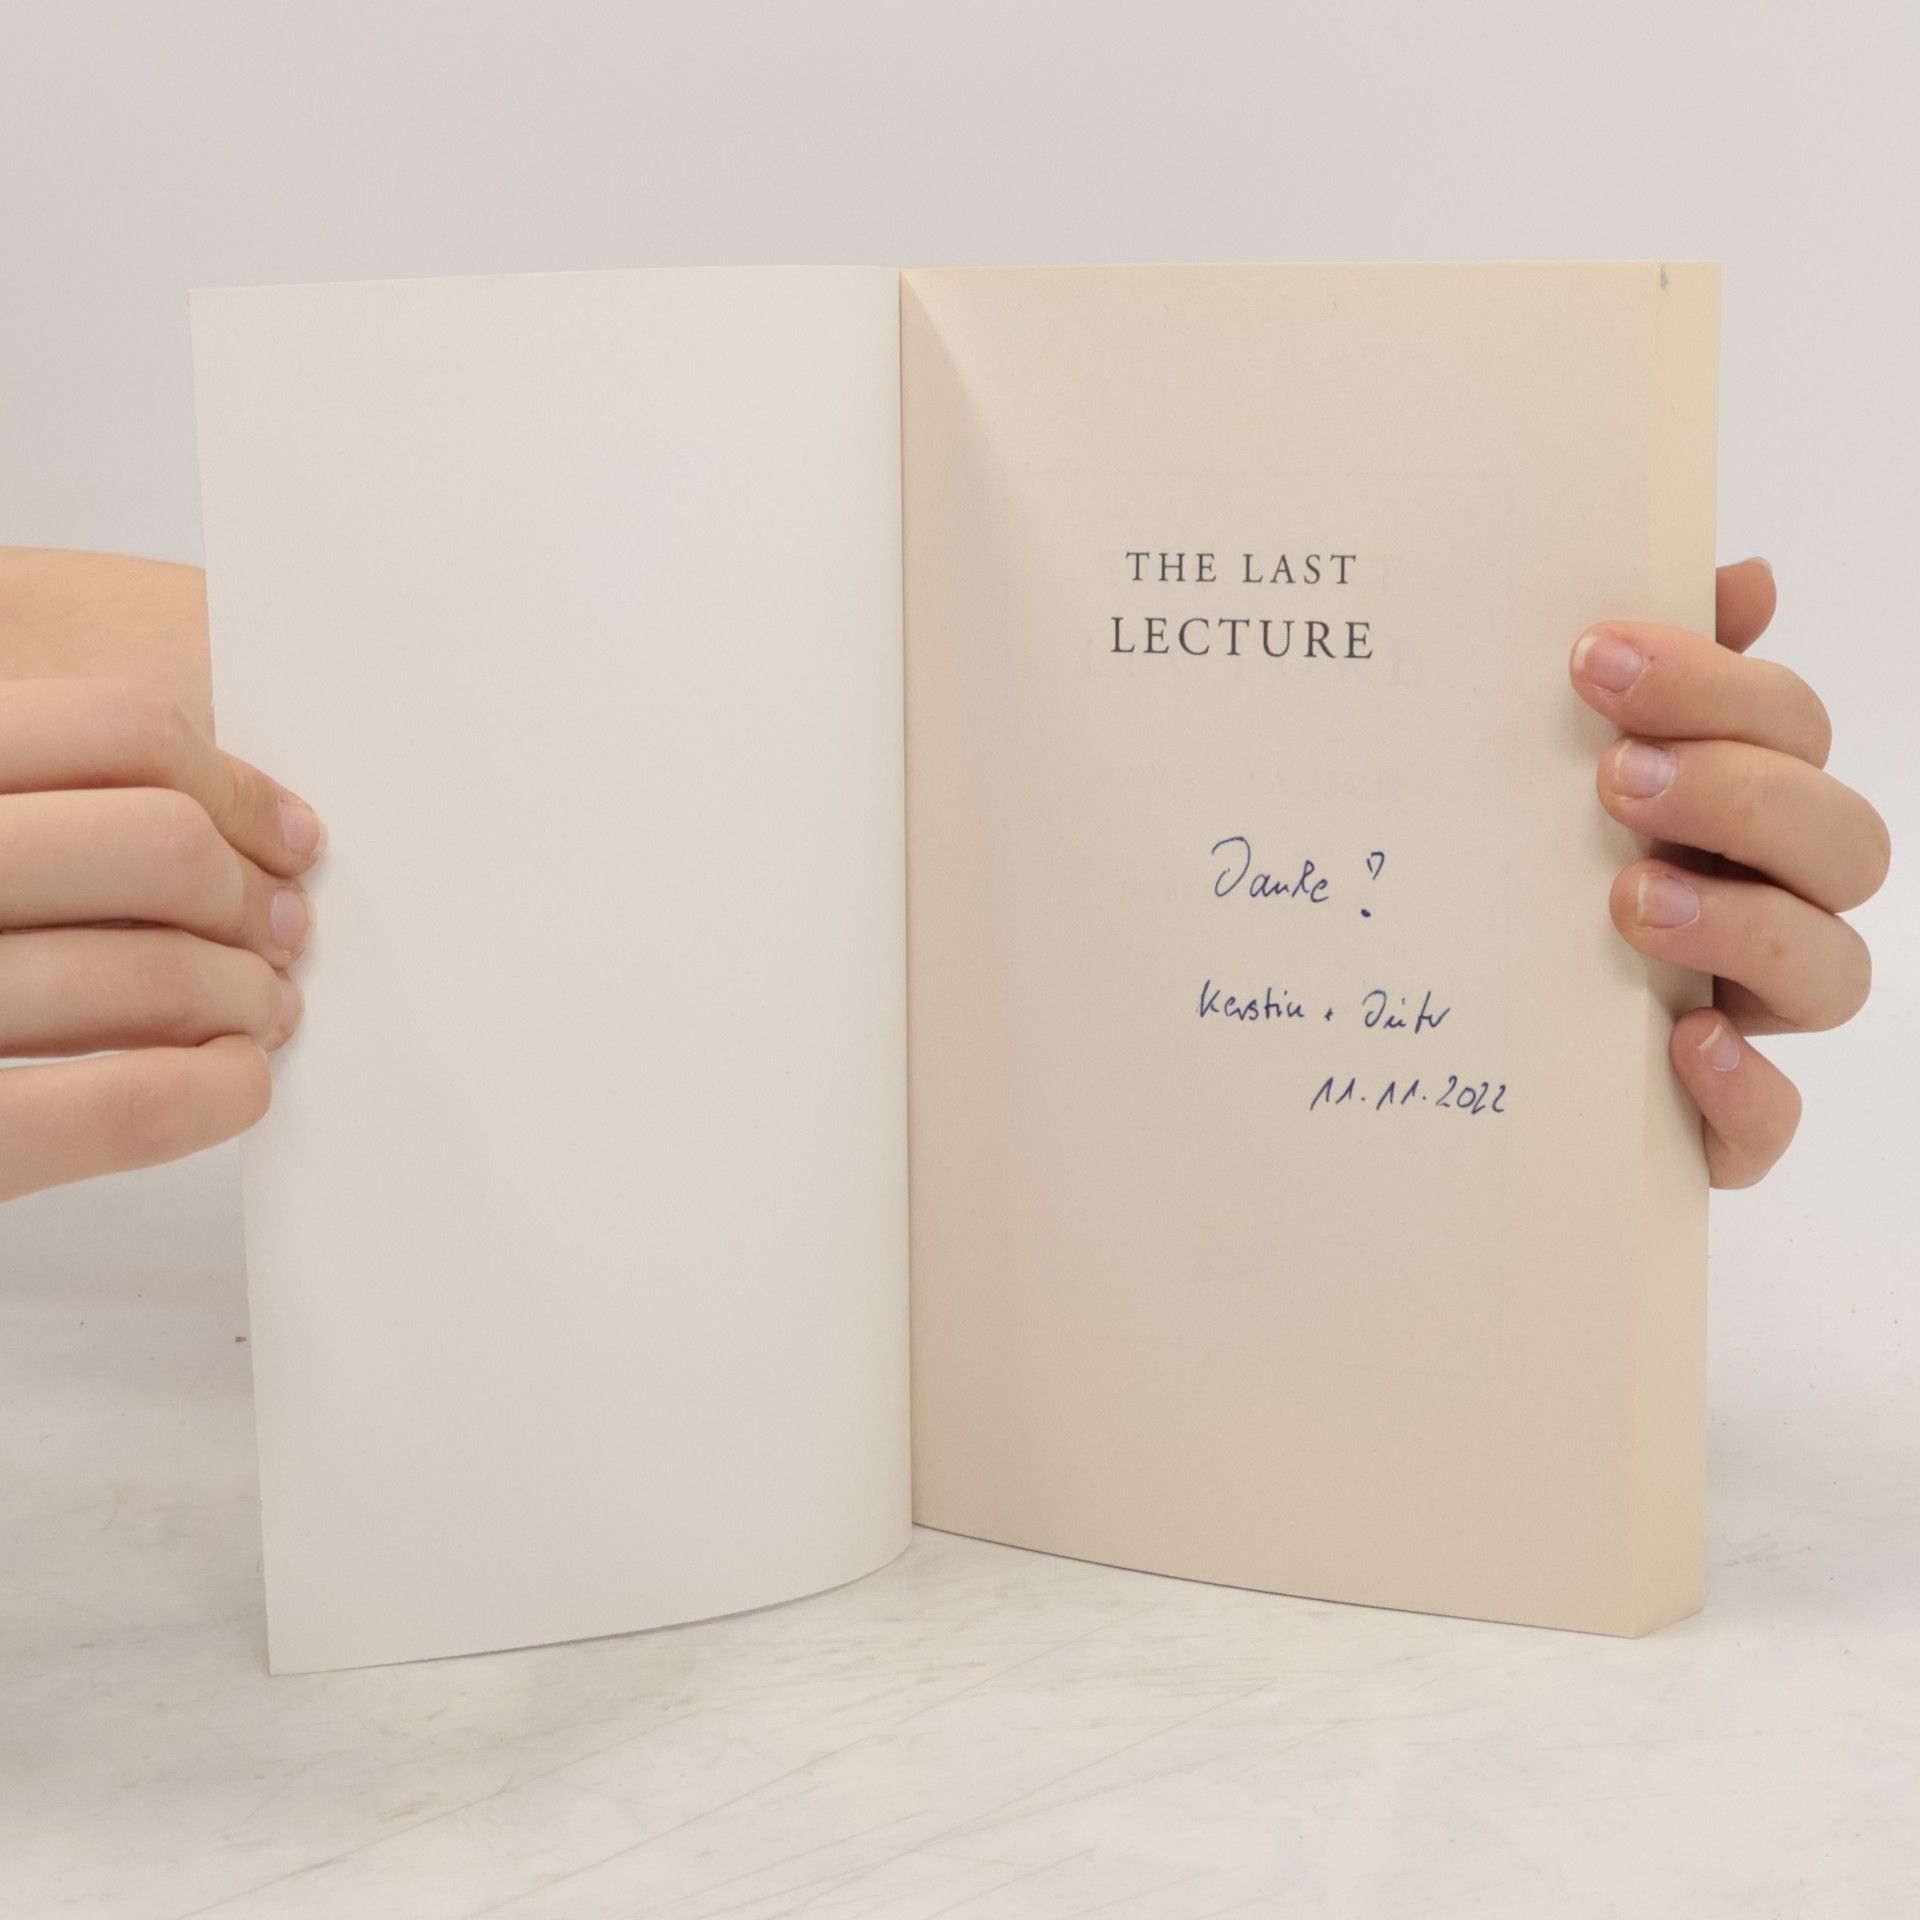 THE LAST
LECTURE
Danke !
Kerstin + Dieter
11.11.2022